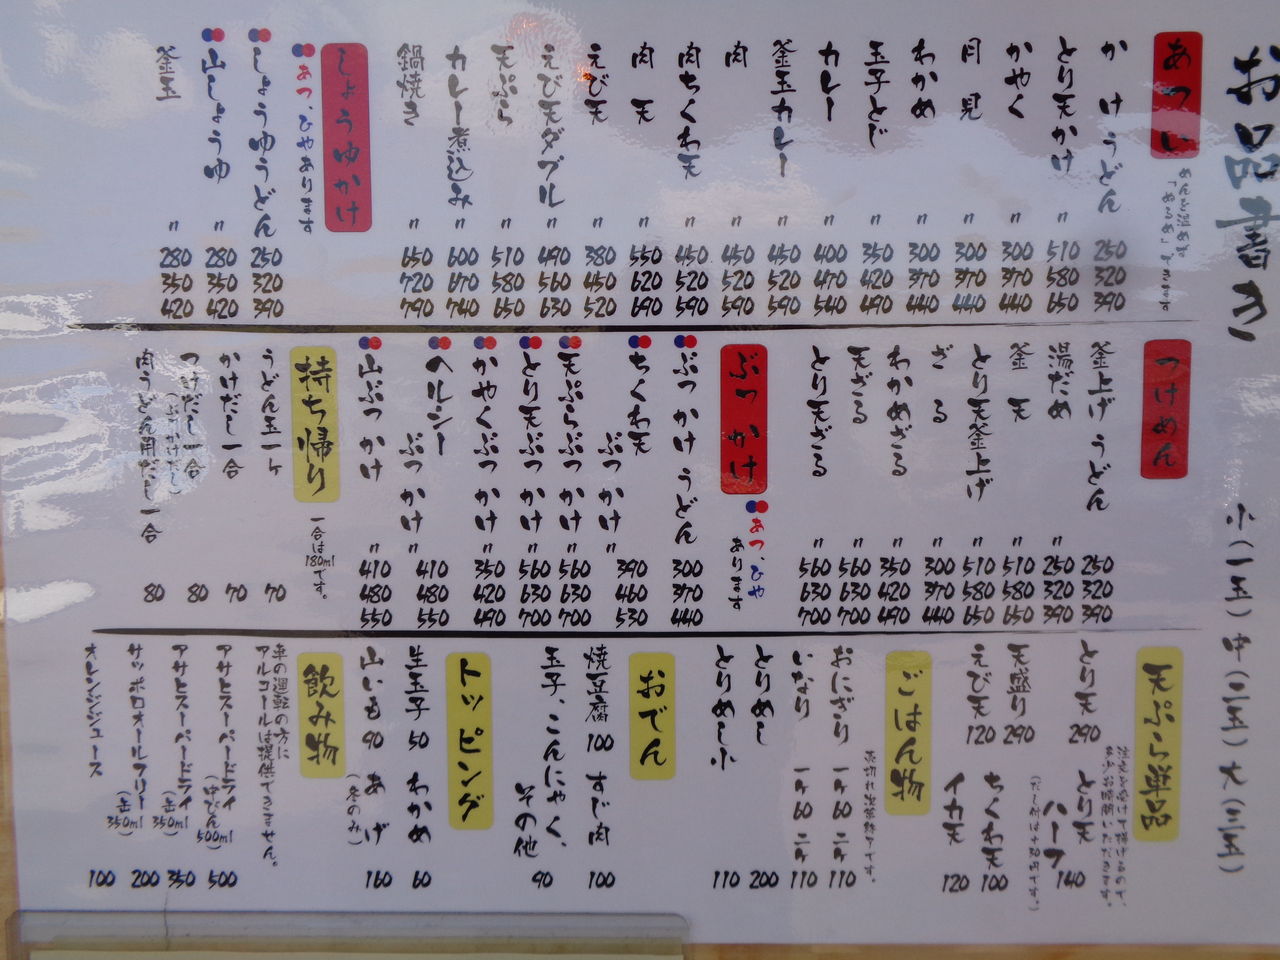 お品書き
小(一玉) 中(二玉) 大(三玉)
あつい
かけうどん 250 320 390
とり天かけ 〃 510 580 650
かやく 〃 300 370 440
月見 〃 300 370 440
わかめ 〃 300 370 440
玉子とじ 〃 350 420 490
カレー 〃 400 470 540
釜玉カレー 〃 450 520 590
肉 〃 450 520 590
肉ちくわ天 〃 450 520 590
肉天 〃 550 620 690
えび天 〃 380 450 520
えび天ダブル 〃 490 560 630
天ぷら 〃 510 580 650
カレー煮込み 〃 600 670 740
鍋焼き 〃 650 720 790
しょうゆかけ
あつ、ひやあります
しょうゆうどん 250 320 390
山しょうゆ 〃 280 350 420
釜玉 〃 280 350 420
つけめん
釜上げうどん 250 320 390
湯だめ 〃 250 320 390
釜天 〃 510 580 650
とり天釜上げ 〃 510 580 650
ざる 〃 300 370 440
わかめざる 〃 350 420 490
天ざる 〃 560 630 700
とり天ざる 〃 560 630 700
ぶっかけ
あつ、ひや
あります
ぶっかけうどん 300 370 440
ちくわ天ぶっかけ 〃 390 460 530
天ぷらぶっかけ 〃 560 630 700
とり天ぶっかけ 〃 560 630 700
かやくぶっかけ 〃 350 420 490
ヘルシーぶっかけ 〃 410 480 550
山ぶっかけ 〃 410 480 550
持ち帰り
一合は180mlです。
うどん玉一ヶ 70
かけだし一合 70
つけだし一合 80
(ぶっかけだし)
肉うどん用だし一合 80
天ぷら単品
とり天 290
とり天ハーフ 140
天盛り 290
ちくわ天 100
えび天 120
イカ天 120
ごはん物
売切れ次第終了です。
おにぎり 一ヶ60 二ヶ110
いなり 一ヶ60 二ヶ110
とりめし 200
とりめし小 110
おでん
焼豆腐 100 すじ肉 100
玉子、こんにゃく、その他 90
トッピング
生玉子 50 わかめ 60
山いも 90 あげ 160
(冬のみ)
飲み物
車の運転の方に
アルコールは提供できません。
アサヒスーパードライ(中びん500ml) 500
アサヒスーパードライ(缶350ml) 350
サッポロオールフリー(缶350ml) 200
オレンジジュース 100